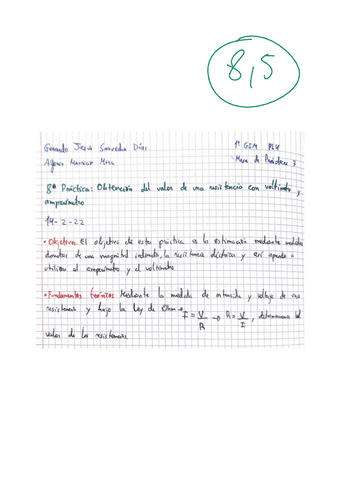 8,5
Gerardo Jesús Saavedra Días 1º GIM
Alfonso Mesa de Prácticas 7
8ª Práctica: Obtención del valor de una resistencia con voltímetro y
amperímetro
14-2-22
• Objetivo: El objetivo de esta práctica es la estimación mediante medidas
directas de una magnitud indirecta, la resistencia eléctrica y así aprender a
utilizar el amperímetro y el voltímetro
• Fundamentos teóricos Mediante la medida de intensidad y voltaje de una
resistencia y bajo la Ley de Ohm → I = V/R → R = V/I, determinamos el
valor de las resistencias